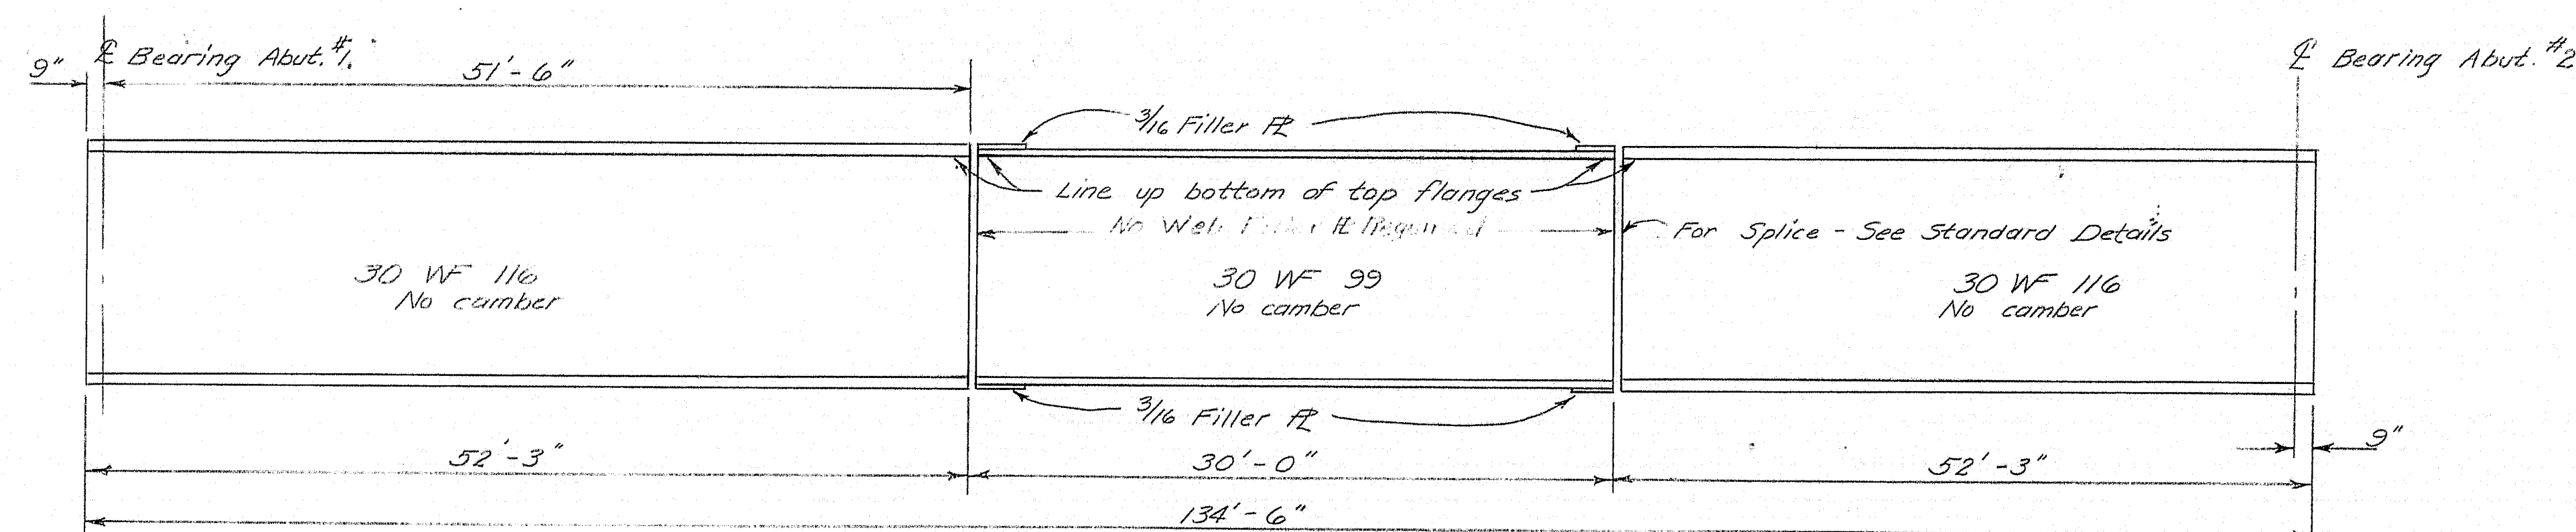 9" ℄ Bearing Abut. #1.
51'-6"
℄ Bearing Abut. #2
3/16 Filler ℙL
Line up bottom of top flanges
No Web Filler ℙL Required
For Splice - See Standard Details
30 WF 116
No camber
30 WF 99
No camber
30 WF 116
No camber
3/16 Filler ℙL
9"
52'-3"
30'-0"
52'-3"
134'-6"